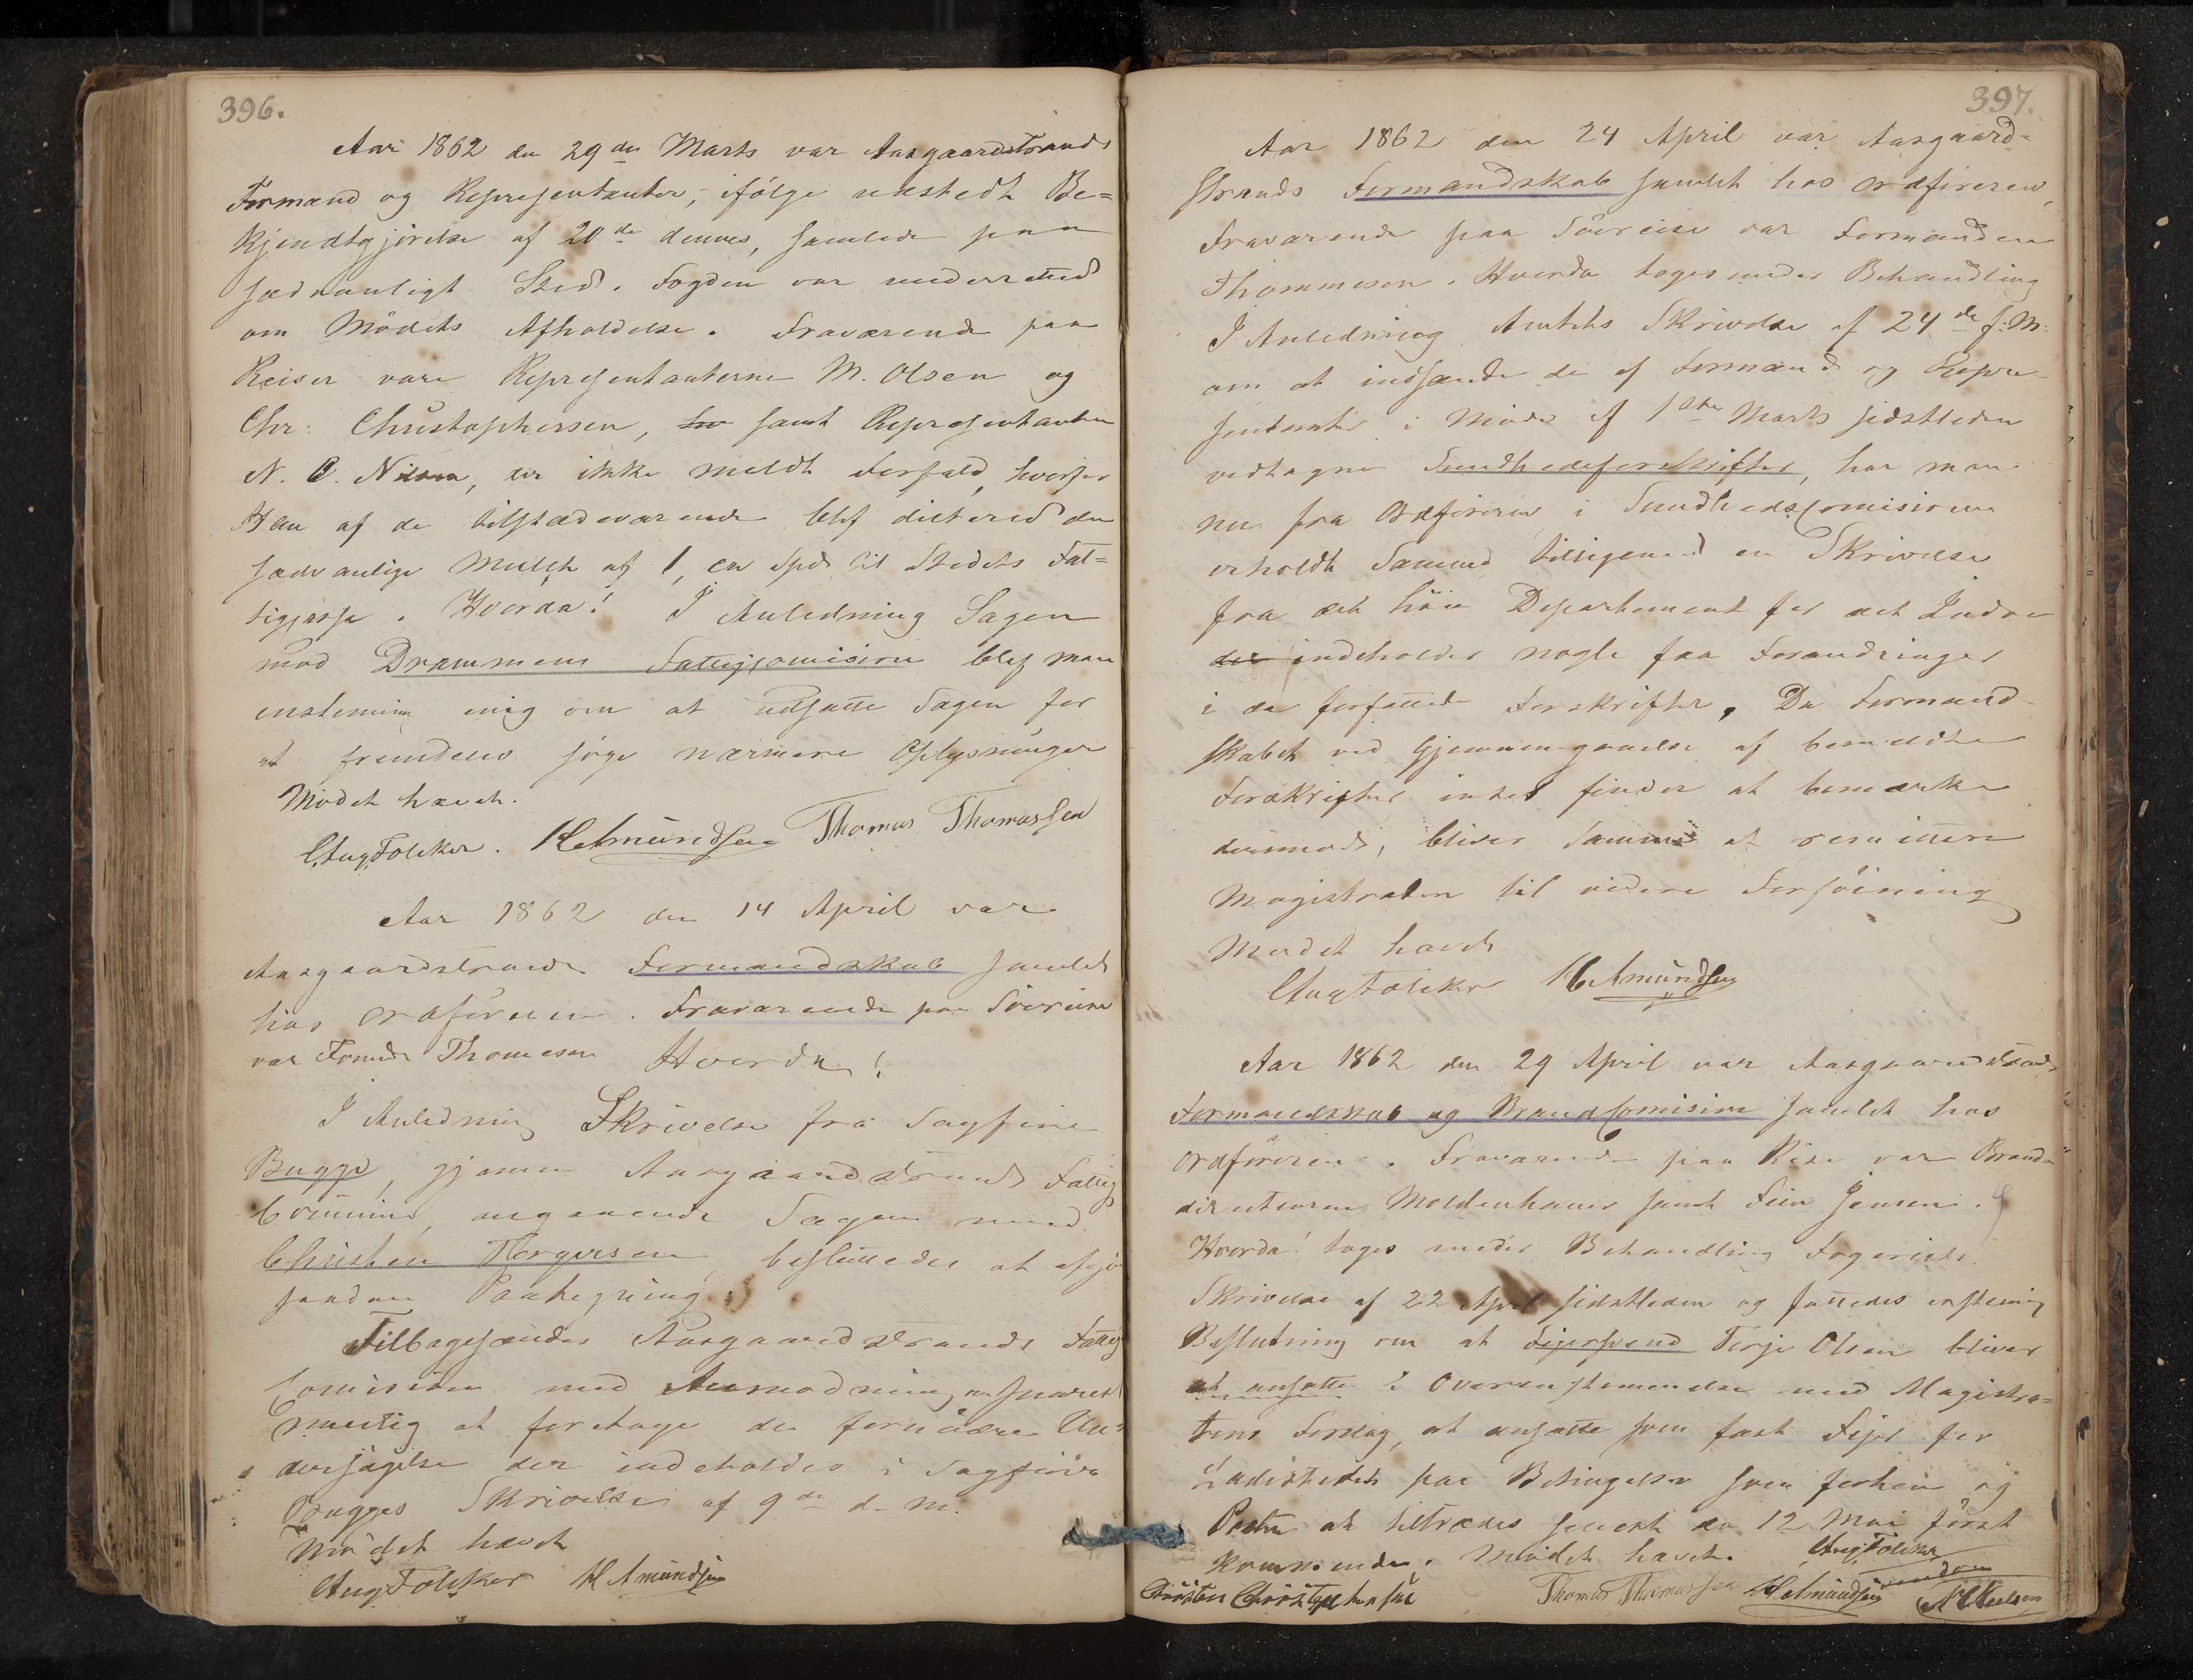 396.
Aar 1862 den 29de Marts var Aasgaardstrands
Formænd og Repræsentanter, ifölge udstedt Be=
kjendtgjörelse af 20de dennes, samlede paa
sædvanligt Sted. Fogden var underrettet
om Mödets Afholdelse. Fraværende paa
Reiser vare Representanterne M. Olsen og
Chr: Christophersen, samt Representanten
N. C. Nilsen, der ikke meldt Forfald, hvorfor
Han af de tilstædeværende blef dikteret den
sædvanlige Mulkt af 1, en Spd. til Stedets Fat=
tigkasse. Hvorda! I Anledning Sagen
mod Drammens Fattigcomision blef man
enstemmig enig om at udsætte Sagen for
at fremdeles söge nærmere Oplysninger
Mödet hævet.
Aug Foleker. H Amundsen Thomas Thomassen
Aar 1862 den 14 April var
Aasgaardstrands Formandskab samlet
hos Ordföreren. Fraværende paa Söereise
var Formd Thomesen Hvorda!
I Anledning Skrivelse fra Sagförer
Bugge, gjennem Aasgaardstrands Fattig
Comision, angaaende Sagen mod
Christen Torgersen, besluttedes at afgive
saadan Paategning.
Tilbagesendes Aasgaardstrands Fattig
Comision med Anmodning om snarest
muelig at foretage de fornödne Un=
dersögelse der indeholdes i Sagförer
Bugges Skrivelse af 9de d. M.
Mödet hævet
Aug Foleker H Amundsen
397.
Aar 1862 den 24 April var Aasgaard=
strands Formandskab samlet hos Ordföreren,
Fraværende paa Söereise var Formanden
Thommesen. Hvorda toges under Behandling
I Anledning Amtets Skrivelse af 24de f: M:
om at indsende de af Formænd og Repre
sentanter i Möde af 1ste Marts sidstleden
vedtagne Sundhedsforskrifter, har man
nu fra Ordföreren i Sundhedscomisionen
erholdt Samme tilligemed en Skrivelse
fra det höie Departement for det Indre
der indeholder nogle faa Forandringer
i de forfattede Forskrifter, Da Formand
skabet ved Gjennemgaaelse af bemeldte
Forskrifter intet finder at bemærke
derimod, bliver Samme at remittere
Magistraten til videre Forföining
Mødet hævet
Aug Foleker H Amundsen
Aar 1862 den 29 April var Aasgaardstrands
Formandskab og Brandcomision samlet hos
Ordföreren. Fraværende paa Reise var Brand=
directeuren Moldenhauer samt Jensen.
Hvorda! toges under Behandling Fogeriets
Skrivelse af 22 April sidstleden og fattedes enstemig
Beslutning om at Feiersvend Terje Olsen bliver
at ansætte i Overensstemmelse med Magistra=
tens Forslag, at ansætte som fast Feier for
Ladestedet paa Betingelser som forhen og
Posten at tiltrædes senest den 12 Mai först
kommende. Mödet hævet. Aug Foleker
Christen Christophersen Thomas Thomassen H Amundsen N C Nielsen